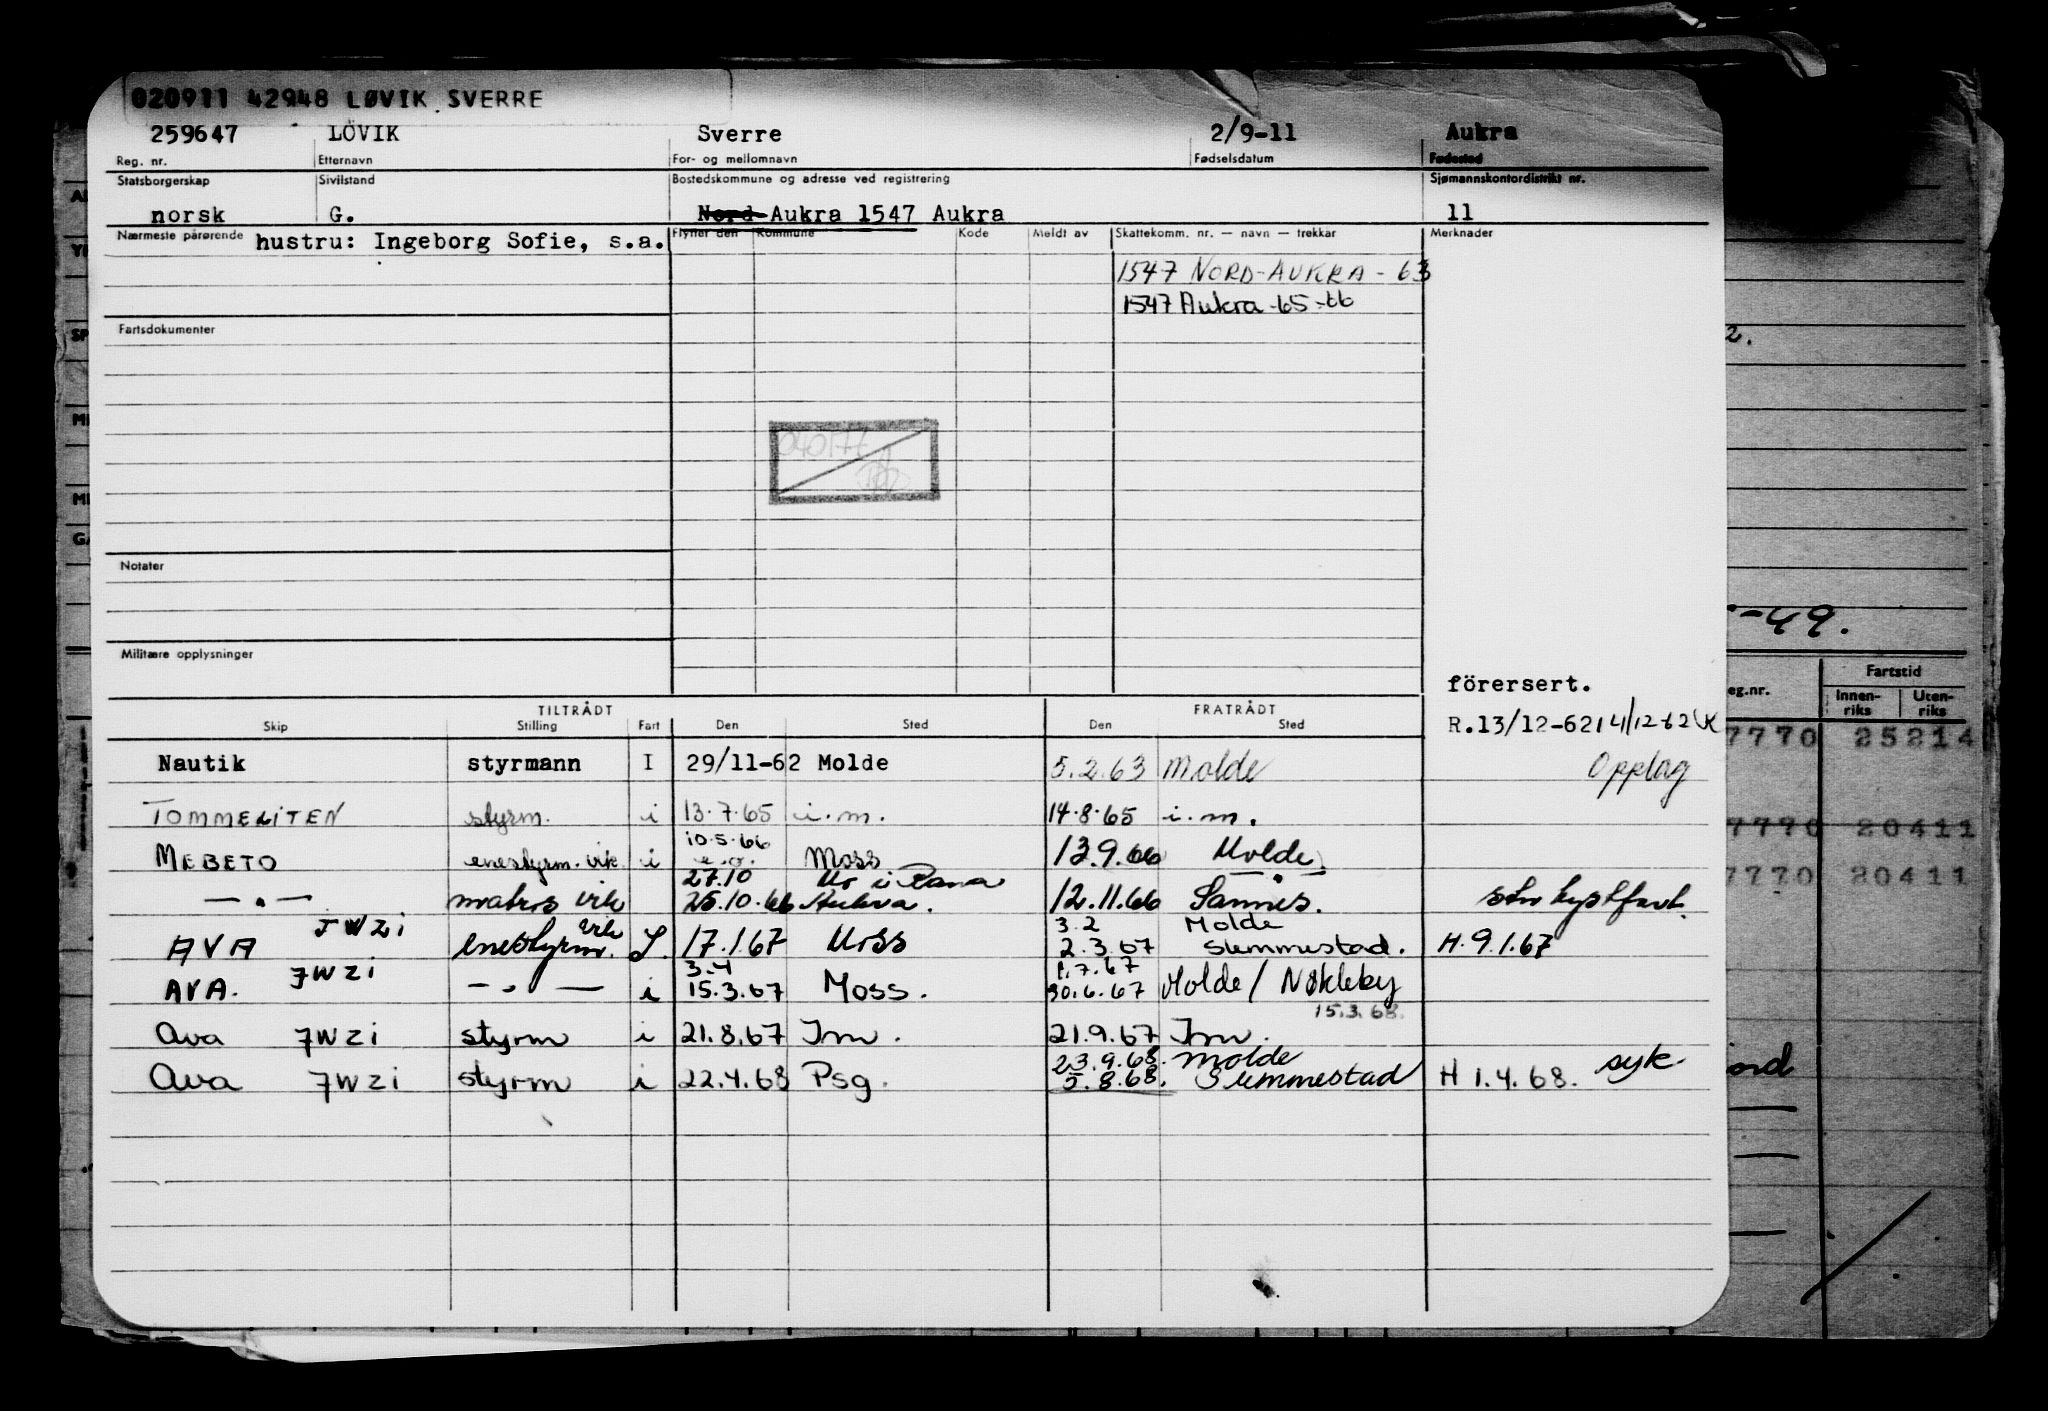 020911 42948 LØVIK SVERRE
259647 LÖVIK Sverre 2/9-11 Aukra
Reg. nr. Etternavn For- og mellomnavn Fødselsdatum Fødested
Statsborgerskap Sivilstand Bostedskommune og adresse ved registrering Sjømannskontordistrikt nr.
norsk G. Nord-Aukra 1547 Aukra 11
Nærmeste pårørende hustru: Ingeborg Sofie, s.a. Flytter den Kommune Kode Meldt av Skattekomm. nr. — navn — trekkår Merknader
1547 NORD-AUKRA - 63
1547 Aukra -65-66
Fartsdokumenter
040177
Notater
Militære opplysninger
förersert.
TILTRÅDT FRATRÅDT
Skip Stilling Fart Den Sted Den Sted
R.13/12-62 14/12-62
Nautik styrmann I 29/11-62 Molde 5.2.63 Molde Opplag
TOMMELITEN styrm. i 13.7.65 i.m. 14.8.65 i.m.
10.5.66
MEBETO enestyrm. vik. i Moss 13.9.66 Molde
27.10 Mo i Rana
— " — matros vik 25.10.66 Aukra. 12.11.66 Sannes. stor kystfart.
JWZI vik 3.2 Molde
AVA enestyrm. 17.1.67 Moss 2.3.67 Slemmestad. H. 9.1.67
JWZI 3.4 1.7.67
AVA. — " — i 15.3.67 Moss. 30.6.67 Molde / Nøkleby
15.3.68.
Ava JWZI styrm i 21.8.67 Im. 21.9.67 Im.
23.9.68. Molde
Ava JWZI styrm i 22.4.68 Psg. 5.8.68. Slemmestad H 1.4.68. syk
2.
-49.
Fartstid
eg.nr. Innen-riks Uten-riks
7770 25214
7770 20411
7770 20411
ord